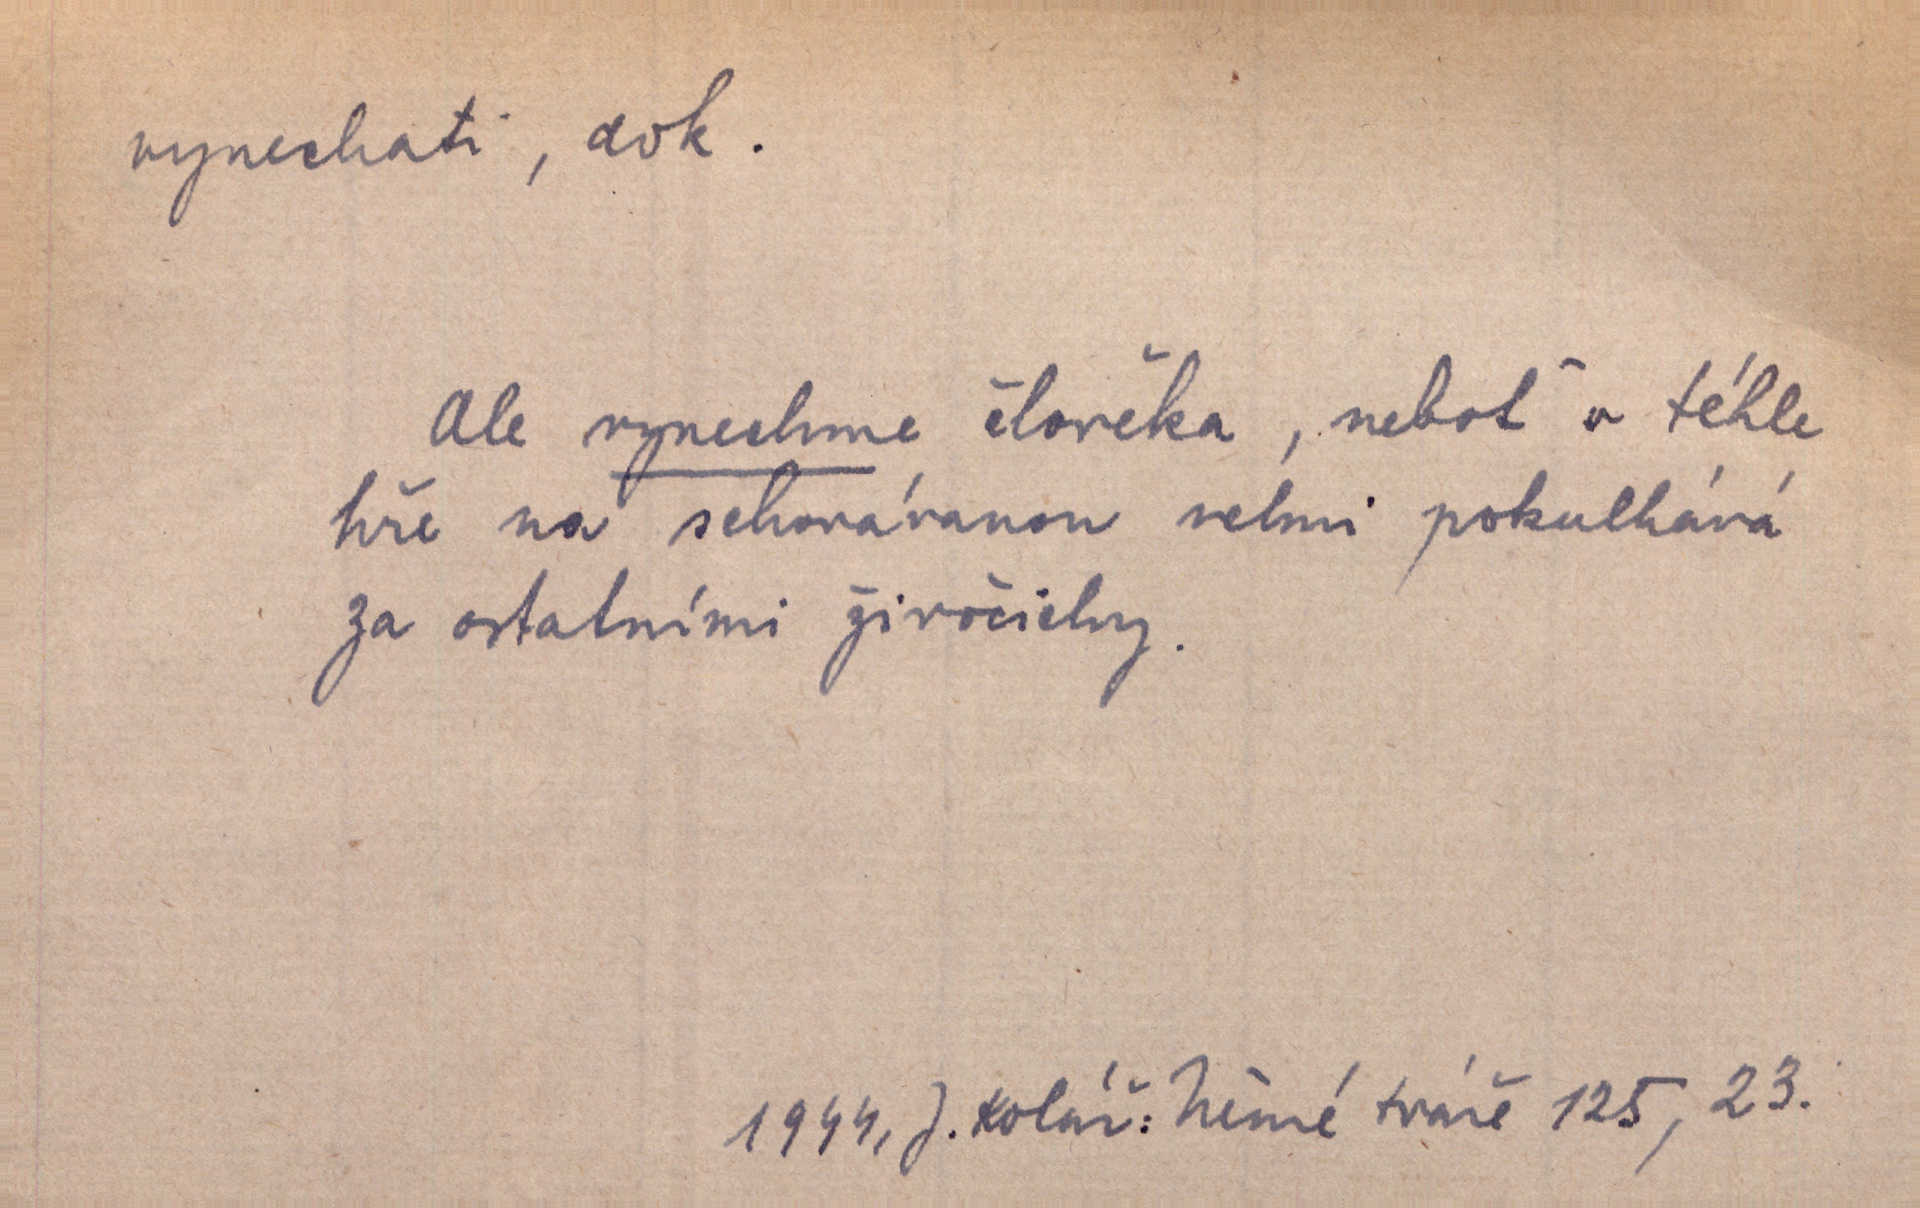 vynechati, dok.
Ale vynechme člověka, neboť v téhle
hře na schovávanou velmi pokulhává
za ostatními živočichy.
1944, J. Kolář: Němé tváře 125, 23.